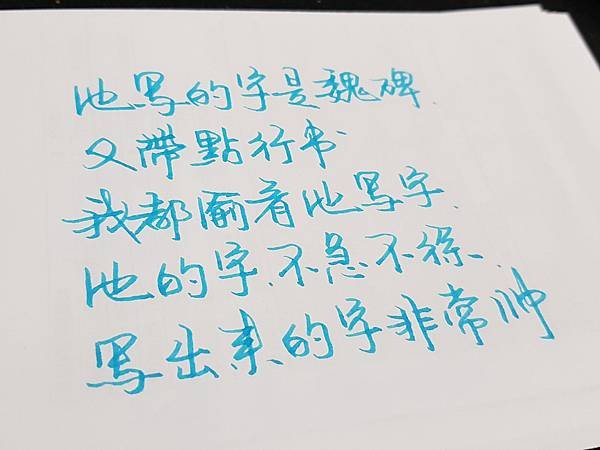 他写的字是魏碑
又帶點行书
我都商着他写字.
他的字.不急不徐.
写出来的字非常帅